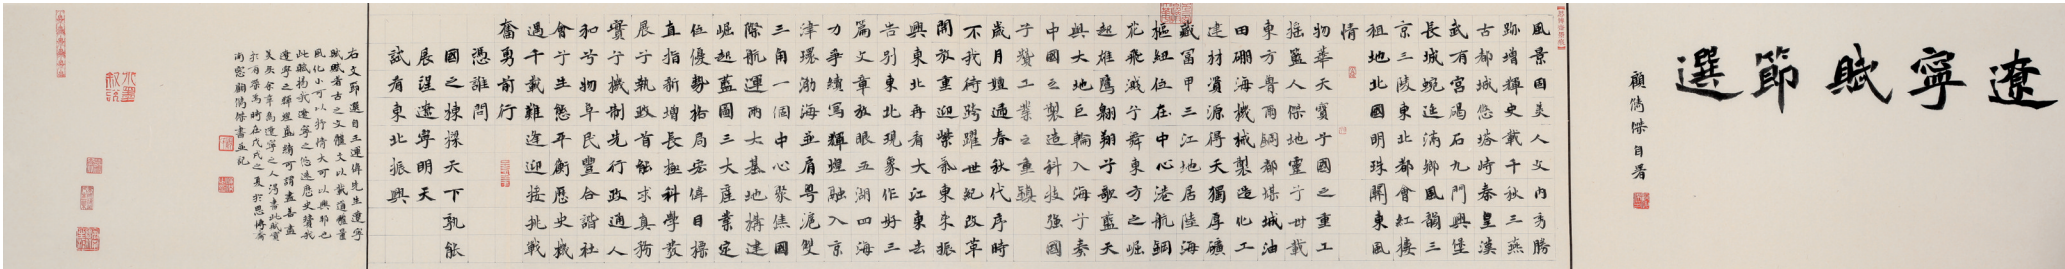 遼寧賦節選
顧儁傑自署
風景固美人文內秀勝
跡增輝史載千秋三燕
古都城悠塔峙秦皇漢
武有宮碣石九門興堡
長城蜿迤滿鄉風韻三
京三陵東北都會紅樓
祖地北國明珠關東風
情
物華天寶兮國之重工
搖籃人傑地靈兮世載
東方魯爾鋼都煤城油
田硼海機械製造化工
建材資源得天獨厚礦
藏富甲三江地居陸海
樞紐位在中心港航鋼
花飛濺兮舞東方之崛
起雄鷹翱翔兮歌藍天
與大地巨輪入海兮奏
中國之製造科技強國
子贊工業之重鎮
歲月嬗遞春秋代序時
不我待跨躍世紀改革
開放重迎紫氣東來振
興東北再看大江東去
告別東北現象作好三
篇文章放眼五湖四海
力爭續寫輝煌融入京
津環渤海並肩粵滬雙
三角一個中心聚焦國
際航運兩大基地構建
崛起藍圖三大產業定
位優勢格局宏偉目標
直指新增長極科學發
展兮執政首能求真務
實兮機制先行政通人
和兮物阜民豐合諧社
會兮生態平衡歷史機
遇千載難逢迎接挑戰
奮勇前行
憑誰問
國之棟樑天下孰能
展望遼寧明天
試看東北振興
右文節選自王運偉先生遼寧
賦賦者古之文體文以載道雅量
風化小可以抒情大可以興邦也
此賦揚我遼寧之悠遠歷史贊我
遼寧之輝煌盛績可謂盡善盡
美矣余幸為遼寧之人得書此賦實
南窗顧儁傑書並記